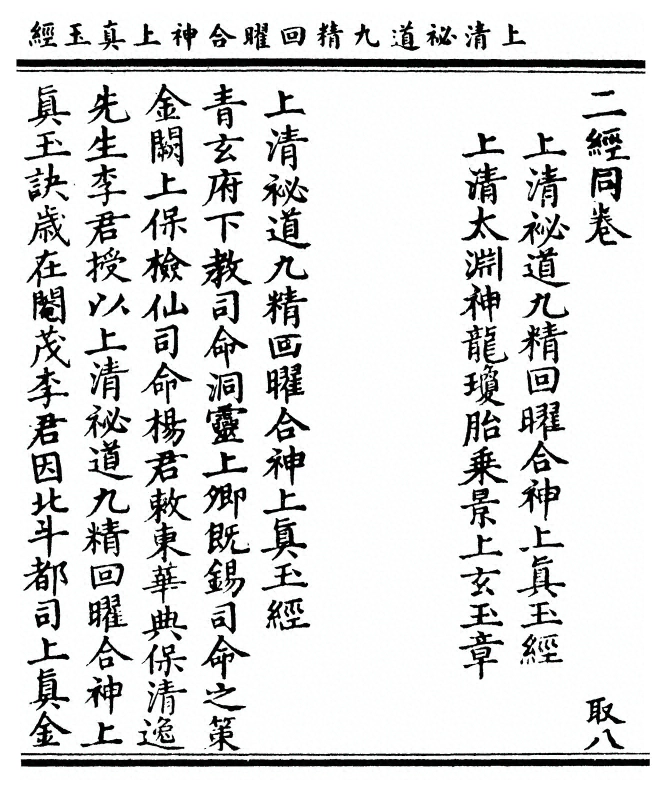 上清祕道九精回曜合神上真玉經
二經同卷
取八
上清祕道九精回曜合神上眞玉經
上清太淵神龍瓊胎乗景上玄玉章
上清祕道九精回曜合神上眞玉經
青玄府下教司命洞靈上卿既錫司命之策
金闕上保檢仙司命楊君敕東華典保清逸
先生李君授以上清祕道九精回曜合神上
眞玉訣歲在閹茂李君因北斗都司上眞金